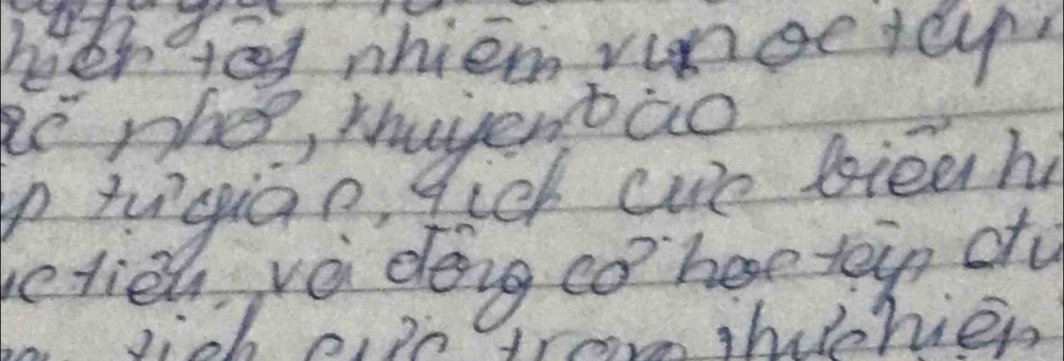 hiện tốt nhiệm vụ học tập,
ắc nhở, khuyên bảo
p tự giác, tích cực biểu hi
ục tiêu, và động cơ học tập đú
tích cực trong thực hiện